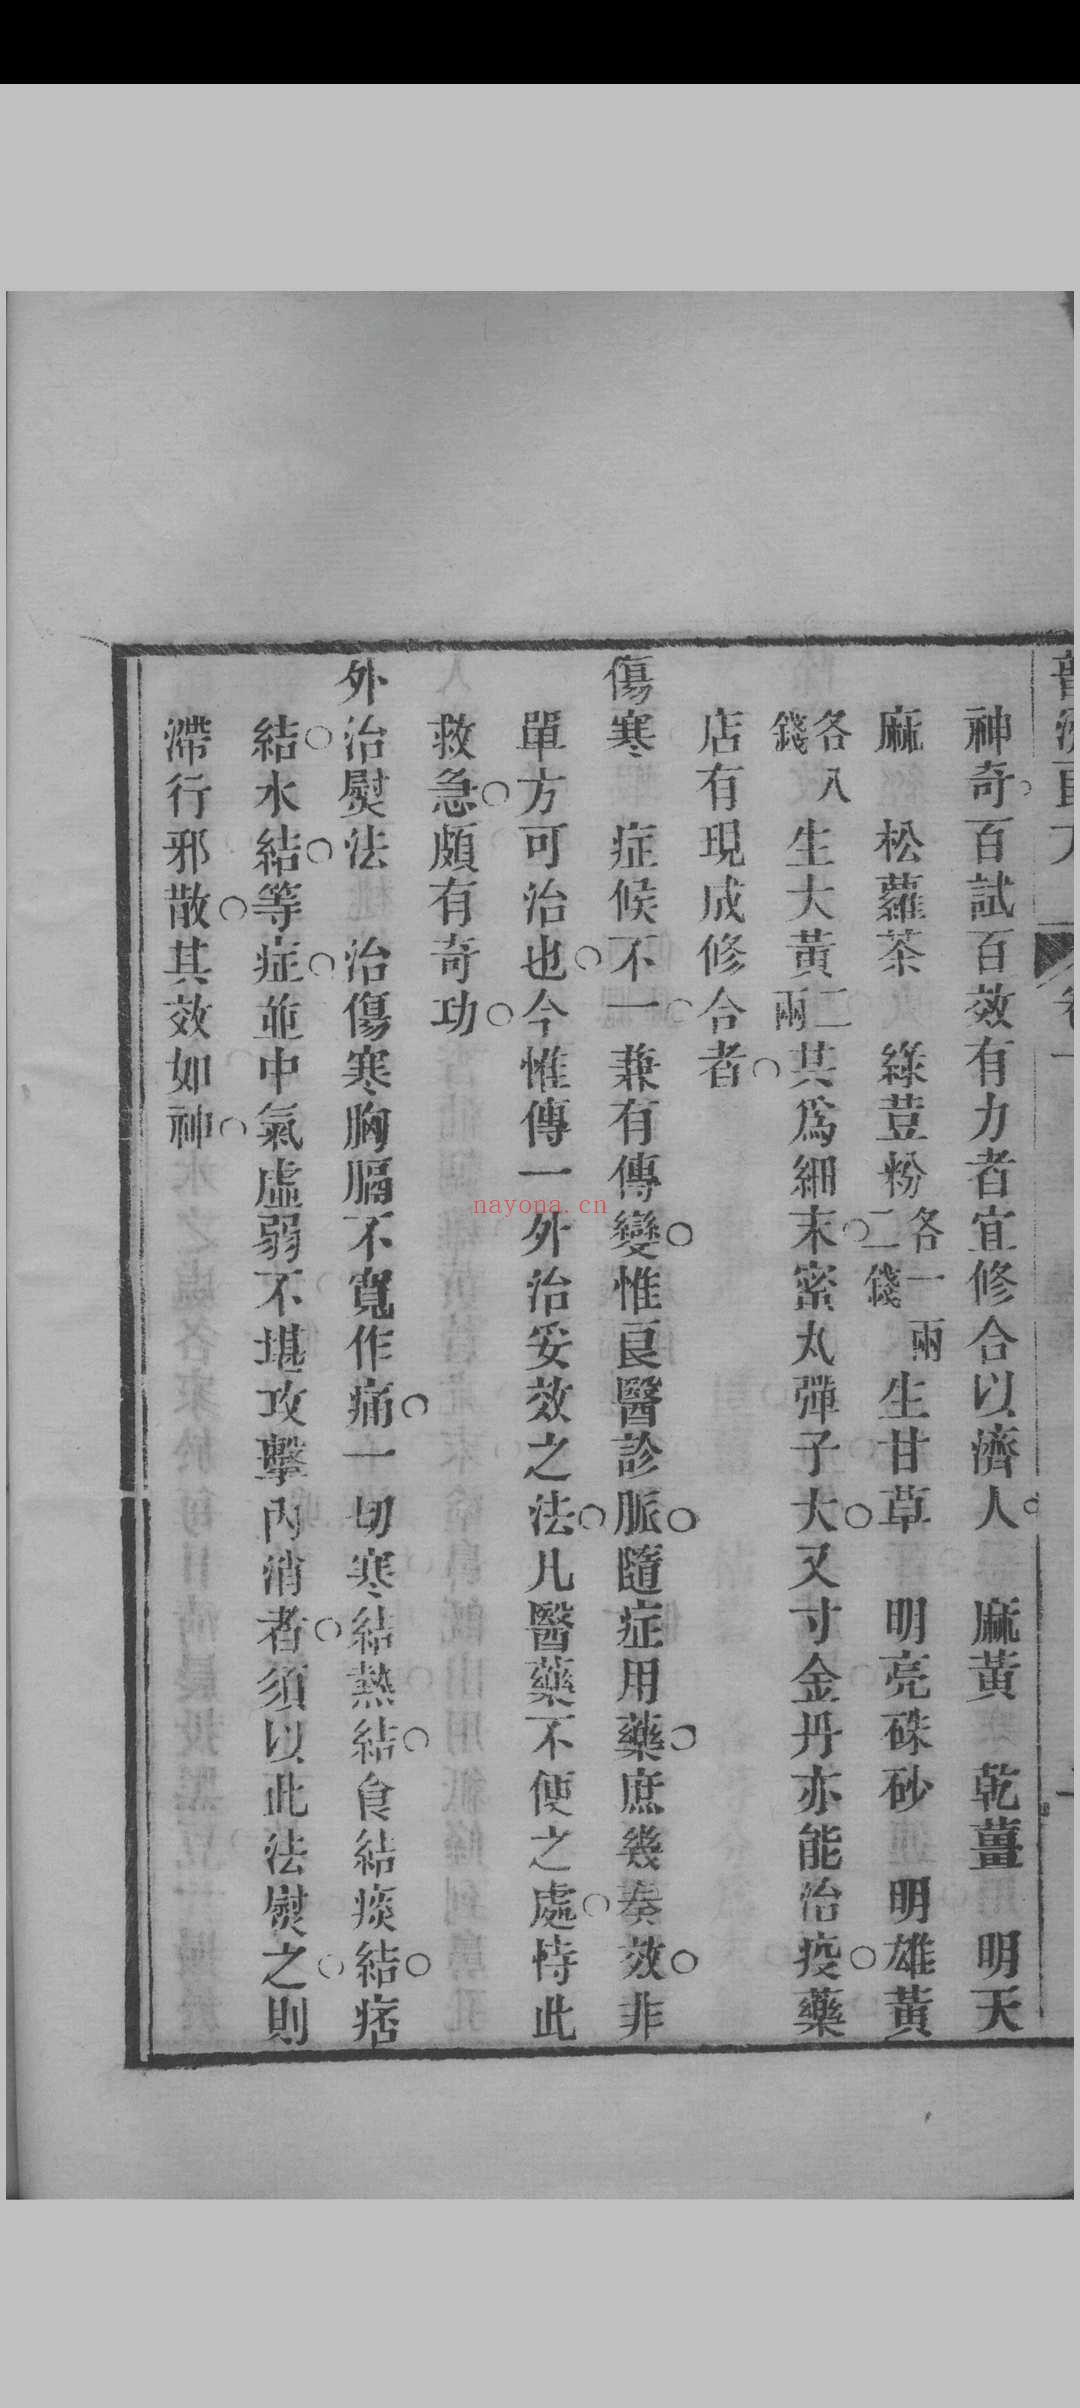 神奇百試百效有力者宜修合以濟人○　麻黃　乾薑　明天
麻　松蘿茶　綠荳粉各一兩二錢　生甘草　明亮硃砂　明雄黃
各八錢　生大黃二兩　共爲細末○密丸彈子大○又寸金丹亦能治疫○藥
店有現成修合者○
傷寒　症候不一○兼有傳變○惟良醫診脈○隨症用藥○庶幾奏效○非
單方可治也○今惟傳一外治妥效之法○凡醫藥不便之處○恃此
救急○頗有奇功○
外治熨法　治傷寒胸膈不寬作痛○一切寒結熱結○食結痰結○痞
結○水結○等症○並中氣虛弱不堪攻擊內消者○須以此法熨之○則
滯行邪散○其效如神○
nayona.cn